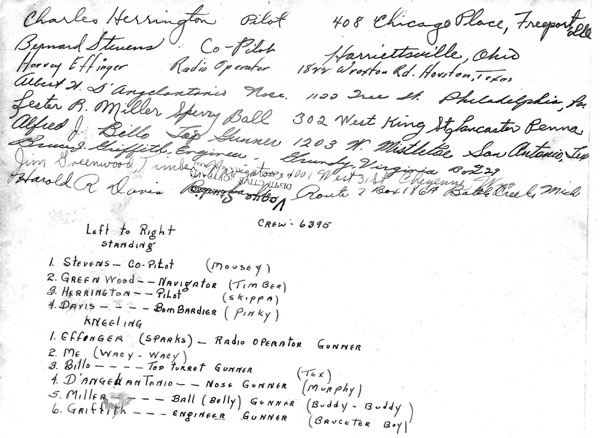 Charles Herrington Pilot 408 Chicago Place, Freeport, Ille
Bernard Stevens Co-Pilot Harriettsville, Ohio
Harvey Effinger Radio Operator 1822 Wroxton Rd. Houston, Texas
Albert H. D'Angelantonio Nose. 1122 Tree St. Philadelphia, Pa.
Lester R. Miller Sperry Ball 302 West King St, Lancaster Penna
Alfred J. Bello Top Gunner 1203 W. Mistletoe, San Antonio, Tex
Griffith Engineer Grundy, Virginia Box 29
Jim Greenwood, Timber Navigator West 31 St Cheyenne
Harold R Davis Route 2 Box 186A Battle Creek Mich
CREW- 6395
Left to Right
STANDING
1. STEVENS - CO-PILOT (MOUSEY)
2. GREEN WOOD - - NAVIGATOR (TIM BER)
3. HERRINGTON - - PILOT (SKIPPA)
4. DAVIS - - - - BOM BARDIER (PINKY)
KNEELING
1. EFFONGER (SPARKS) - RADIO OPERATOR GUNNER
2. ME (WACY - WACY)
3. Billo - - - - TOP TURRET GUNNER (TEX)
4. D'ANGELANTANIO - - NOSE GUNNER (MURPHY)
5. Miller - - - - BALL (Belly) GUNNER (BUDDY - BUDDY)
6. GRIFFITH - - - - ENGINEER GUNNER (BRUCETER BOY)